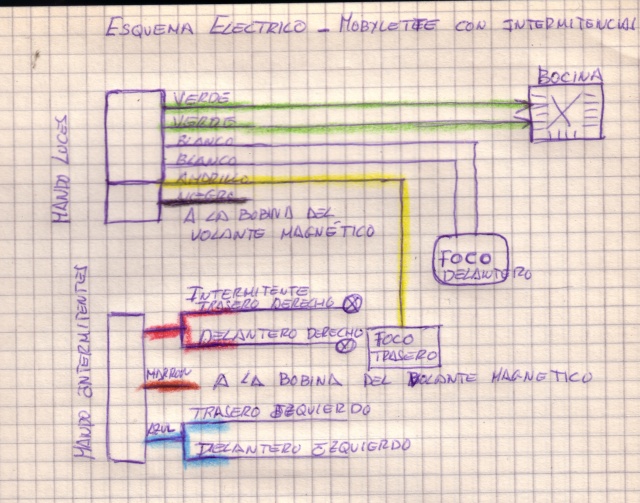 ESQUEMA ELECTRICO - MOBYLETTE CON INTERMITENCIAS
BOCINA
MANDO LUCES
VERDE
VERDE
BLANCO
BLANCO
AMARILLO
NEGRO
A LA BOBINA DEL
VOLANTE MAGNÉTICO
FOCO
DELANTERO
MANDO INTERMITENTES
INTERMITENTE
TRASERO DERECHO
DELANTERO DERECHO
FOCO
TRASERO
MARRON
A LA BOBINA DEL VOLANTE MAGNETICO
AZUL
TRASERO IZQUIERDO
DELANTERO IZQUIERDO